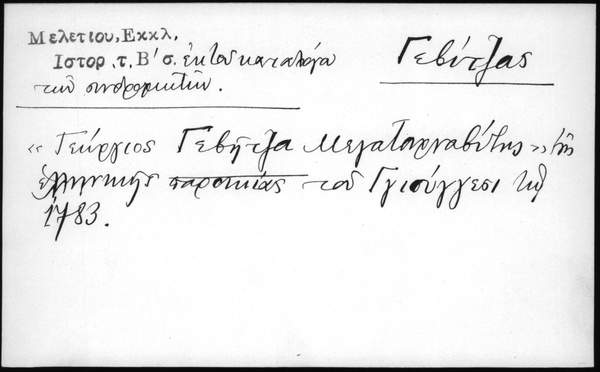 Μελετίου, Εκκλ,
Ιστορ. τ, Β' σ. ἐκ τοῦ καταλόγου
τῶν συνδρομητῶν.
Γεβίτζας
« Γεώργιος Γεβῆτζα Μεγαταρναβίτης » τῆς
ἑλληνικῆς παροικίας τοῦ Γγιούγγεσι τῷ
1783.